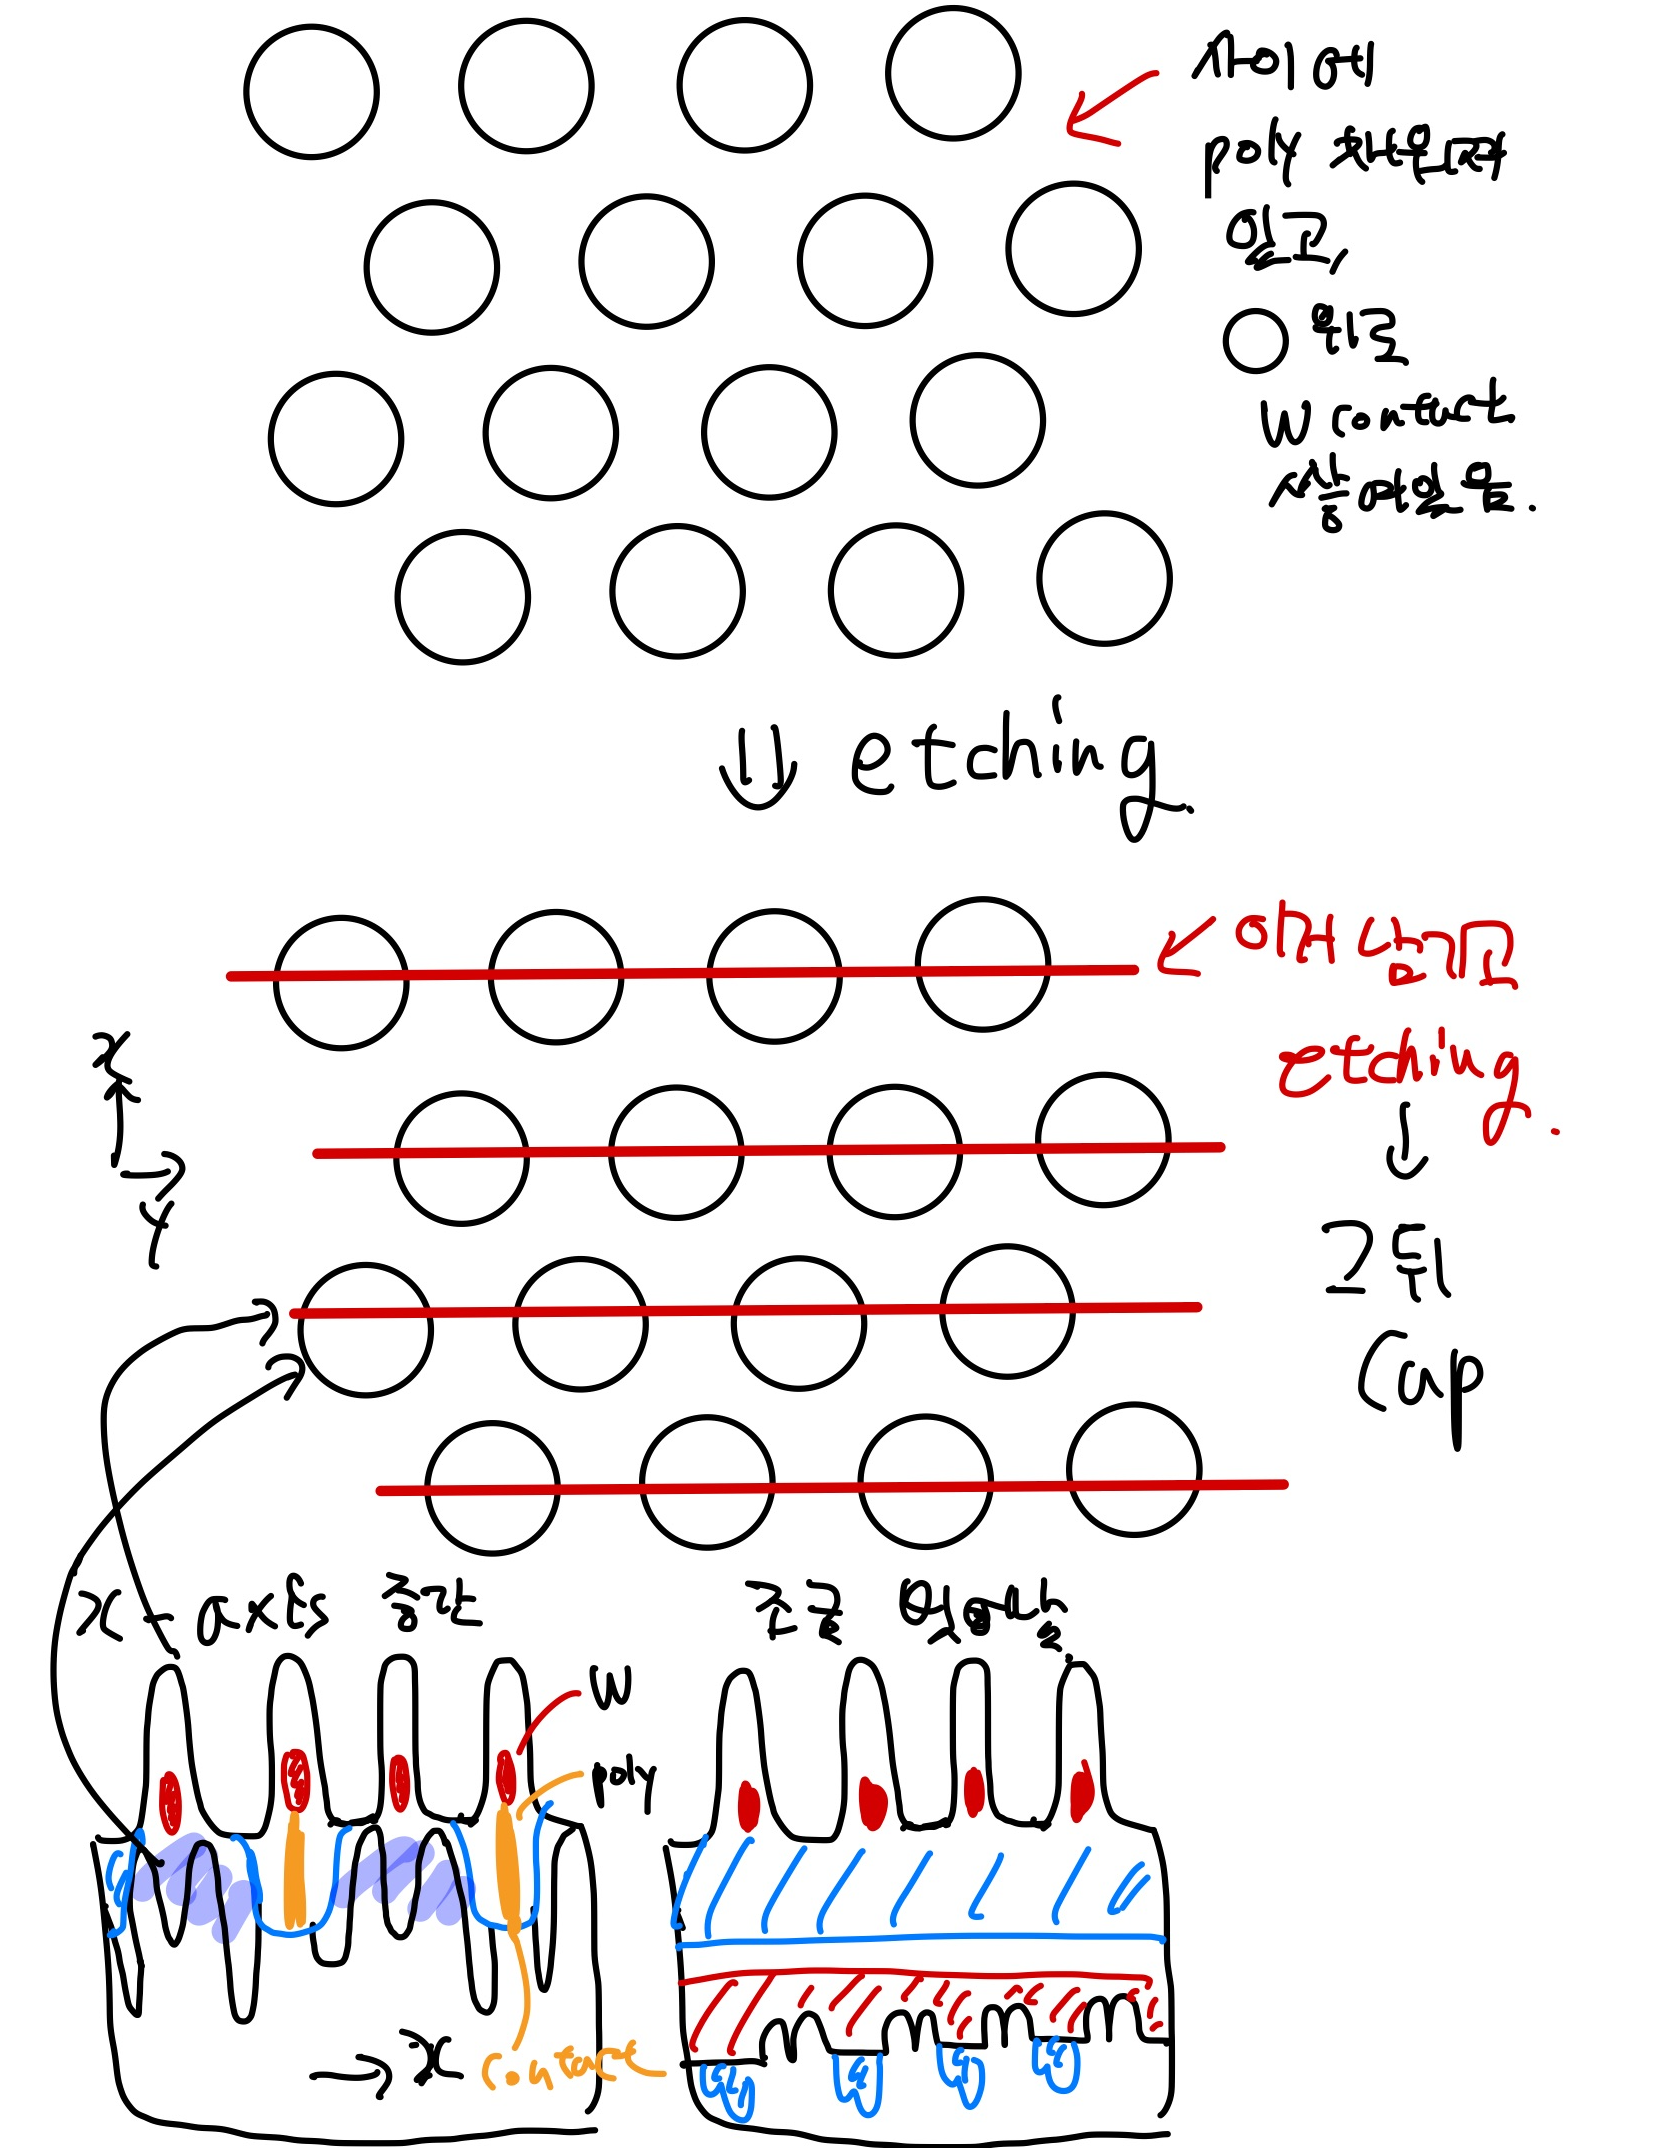 사이에
poly 채워져
있고,
위로
W contact
쌓여있음.
etching.
이거 남기고
etching.
↓
그 뒤
Cap
x
y
x-axis 중간
W
poly
→x
contact